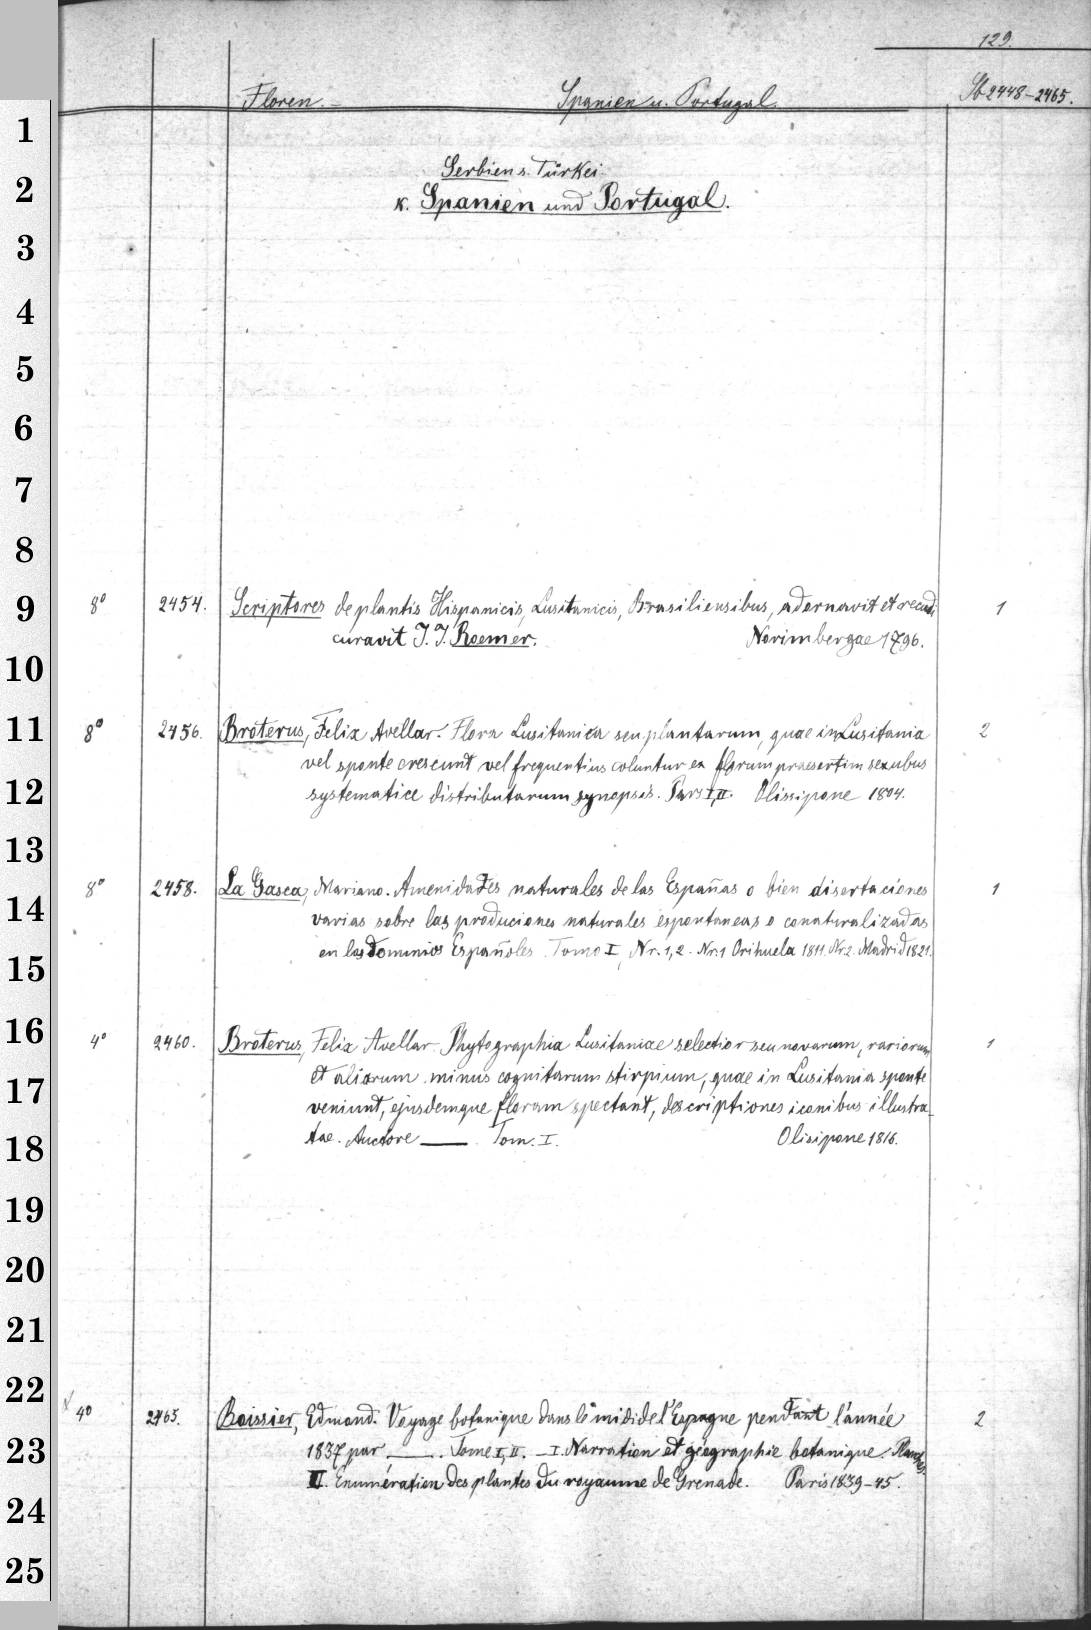 129.
Floren. – Spanien u. Portugal. Sb 2448–2465.
1
Serbien s. Türkei.
2
κ. Spanien und Portugal.
3
4
5
6
7
8
9
8° 2454. Scriptores de plantis Hispanicis, Lusitanicis, Brasiliensibus, adornavit et recudi 1
curavit J. J. Roemer. Norimbergae 1796.
10
11
8° 2456. Broterus, Felix Avellar. Flora Lusitanica seu plantarum, quae in Lusitania 2
vel sponte crescunt vel frequentius coluntur ex florum praesertim sexubus
12
systematice distributarum synopsis. Pars I, II. Olissipone 1804.
13
8° 2458. La Gasca, Mariano. Amenidades naturales de las Españas o bien disertaciones 1
14
varias sobre las produciones naturales espontaneas o conaturalizadas
en los Dominios Españoles. Tomo I, Nr. 1, 2. Nr. 1 Orihuela 1811. Nr. 2. Madrid 1821.
15
16
4° 2460. Broterus, Felix Avellar. Phytographia Lusitaniae selectior seu novarum, rariorum 1
et aliorum minus cognitarum stirpium, quae in Lusitania sponte
17
veniunt, ejusdemque floram spectant, descriptiones iconibus illustra-
18
tae. Auctore —— . Tom. I. Olisipone 1816.
19
20
21
22
4° 2465. Boissier, Edmond. Voyage botanique dans le midi de l'Espagne pendant l'année 2
23
1837 par —— . Tome I, II. – I. Narration et géographie botanique. Planches.
II. Enumération des plantes du royaume de Grenade. Paris 1839–45.
24
25